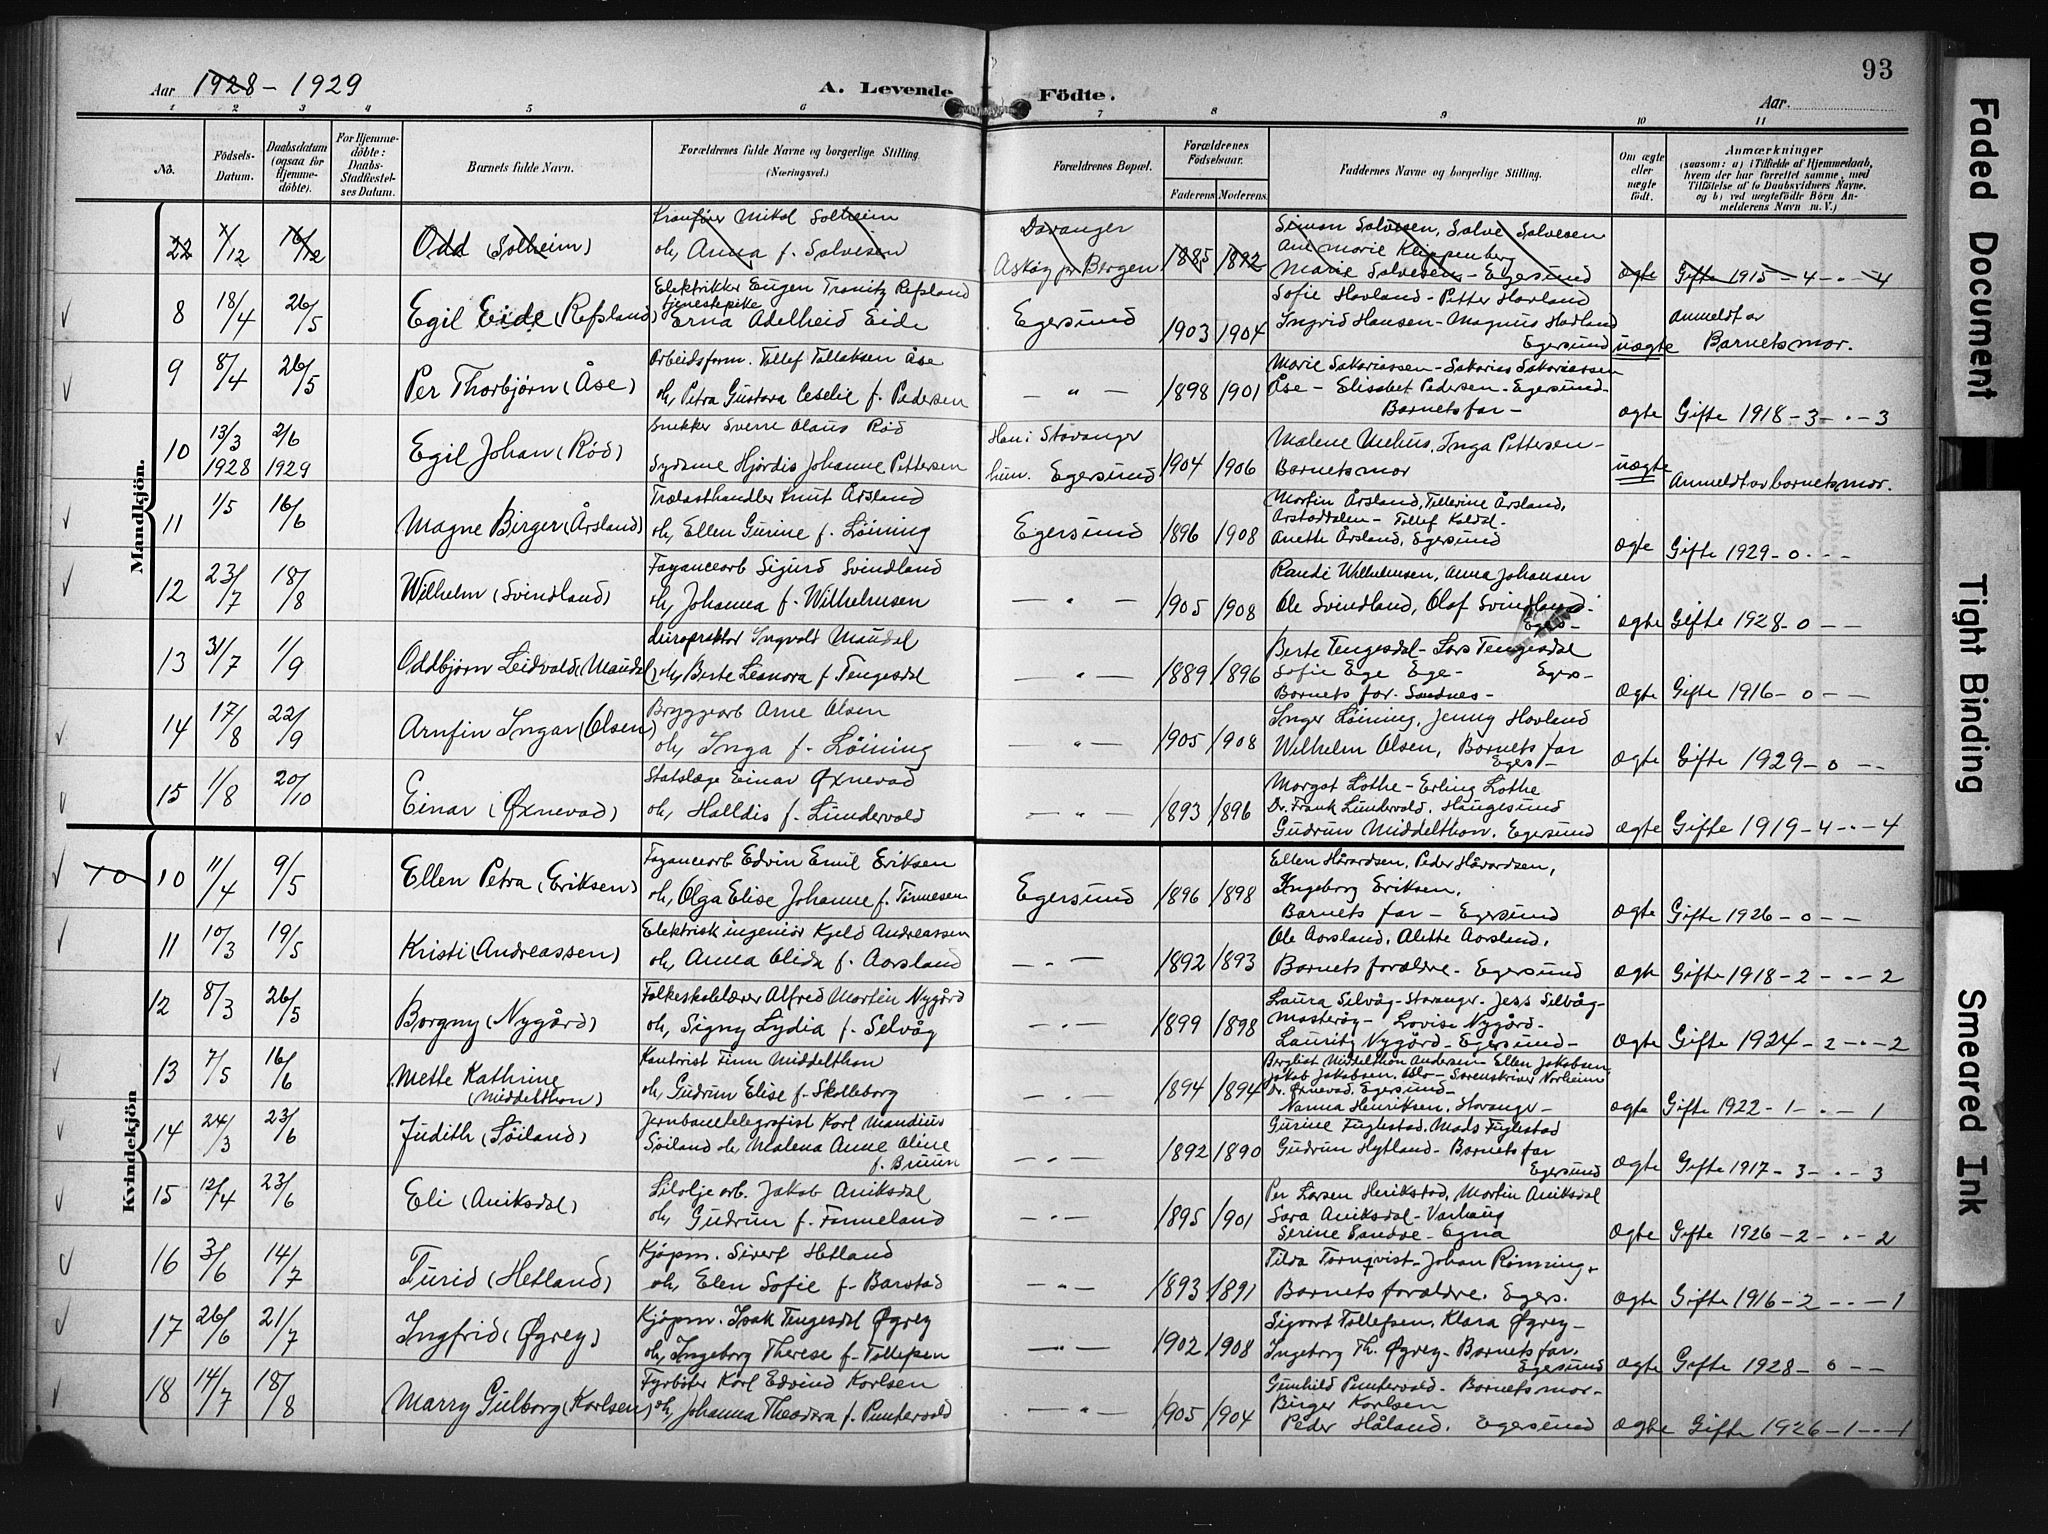 93
Aar 1928 - 1929
A. Levende Födte.
Aar
1 2 3 4 5 6 7 8 9 10 11
No.
Födsels-Datum.
Daabsdatum (ogsaa for Hjemmedöbte).
For Hjemmedöbte: Daabs-Stadfæstelses Datum.
Barnets fulde Navn.
Forældrenes fulde Navne og borgerlige Stilling. (Næringsvei.)
Forældrenes Bopæl.
Forældrenes Födselsaar.
Faderens. Moderens.
Faddernes Navne og borgerlige Stilling.
Om ægte eller uægte födt.
Anmærkninger
(saasom: a) i Tilfælde af Hjemmedaab, hvem der har forrettet samme, med Tilföielse af to Daabsvidners Navne, og b) ved uægtefödte Börn Anmelderens Navn m. V.)
Mandkjön.
22 /12 16/12 Odd (Solheim)
Kranfører Mikal Solheim
oh, Anna f. Salvesen
Davanger
Askøy pr Bergen 1885 1892
Simon Salvesen, Salve Salvesen
Ane Marie Kleppenberg
Marie Salvesen - Egersund
ægte Gifte 1915 - 4 - " - 4
8 18/4 26/5 Egil Eide (Refsland)
Elektrikker Eugen Tranitz Refsland
tjenestepike
Erna Adelheid Eide
Egersund 1903 1904
Sofie Havland - Petter Havland
Ingrid Hansen - Magnus Havland
Egersund
uægte Anmeldt av
Barnets mor.
9 8/4 26/5 Per Thorbjørn (Åse)
Arbeidsform. Tollef Tollaksen Åse
oh, Petra Gustava Ceselie f. Pedersen
— " — 1898 1901
Marie Sakariassen - Sakarias Sakariassen
Åse - Elisabet Pedersen - Egersund -
Barnets far -
ægte Gifte 1918 - 3 - " - 3
10 13/3 1928 2/6 1929 Egil Johan (Rød)
Snekker Sverre Olaus Rød
Sydame Hjørdis Johanne Pettersen
Han i Stavanger
hun. Egersund 1904 1906
Malene Mehus, Inga Pettersen -
Barnets mor
uægte Anmeldt av barnets mor.
11 1/5 16/6 Magne Birger (Årsland)
Trælasthandler Knut Årsland
oh, Ellen Gurine f. Løining
Egersund 1896 1908
Martin Årsland, Tellerine Årsland,
Arstaddalen - Tollef Koldal -
Anette Årsland, Egersund
ægte Gifte 1929 - 0 - " -
12 23/7 18/8 Wilhelm (Svindland)
Fayancearb Sigurd Svindland
oh, Johanna f. Wilhelmsen
— " — 1905 1908
Randi Wilhelmsen, Anna Johansen
Ole Svindland, Olaf Svindland -
Egers -
ægte Gifte 1928 - 0 - -
13 31/7 1/9 Oddbjørn Leidvald (Maudal)
Kiropraktor Ingvald Maudal
oh, Berte Leanora f. Tengesdal
— " — 1889 1896
Berte Tengesdal - Lars Tengesdal
Sofie Ege Ege - Egers -
Barnets far - Sandnes -
ægte Gifte 1916 - 0 - -
14 17/8 22/9 Arnfin Ingar (Olsen)
Bryggearb Arne Olsen
oh, Inga f. Løining
— " — 1905 1908
Inger Løining, Jenny Havland
Wilhelm Olsen, Barnets far
Egers -
ægte Gifte 1929 - 0 - -
15 1/8 20/10 Einar (Øxnevad)
Statslæge Einar Øxnevad
oh, Halldis f. Lundervold
— " — 1893 1896
Margot Lothe - Erling Lothe
Dr. Frank Lundervold. Haugesund
Gudrun Middelthon. Egersund
ægte Gifte 1919 - 4 - " - 4
Kvindekjön
10 10 11/4 9/5 Ellen Petra (Eriksen)
Fayancearb Edvin Emil Eriksen
oh, Olga Elise Johanne f. Tønnesen
Egersund 1896 1898
Ellen Håvardsen, Peder Håvardsen,
Ingeborg Eriksen,
Barnets far - Egersund
ægte Gifte 1926 - 0 - -
11 10/3 19/5 Kristi (Andreassen)
Elektrisk ingeniør Kjeld Andreassen
oh, Anna Olida f. Aarsland
— " — 1892 1893
Ole Aarsland, Alette Aarsland,
Barnets forældre - Egersund
ægte Gifte 1918 - 2 - " - 2
12 8/3 26/5 Borgny (Nygård)
Folkeskolelærer Alfred Martin Nygård
oh, Signy Lydia f. Selvåg
— " — 1899 1898
Laura Selvåg - Stavanger - Jess Selvåg -
Masterøy - Lovise Nygård -
Lauritz Nygård - Egersund -
ægte Gifte 1924 - 2 - " - 2
13 7/5 16/6 Mette Kathrine
(Middelthon)
Kontorist Finn Middelthon
oh, Gudrun Elise f. Skolleborg
— " — 1894 1894
Bergliot Middelthon Andersen - Ellen Jakobsen
Jakob Jakobsen, Oslo - Sorenskriver Norheim
Dr. Øxnevad, Egersund -
Nanna Henriksen, Stavanger -
ægte Gifte 1922 - 1 - " - 1
14 24/3 23/6 Judith (Søiland)
Jernbanetelegrafist Karl Mandius
Søiland oh, Malena Anne Oline
f. Bruun
— " — 1892 1890
Gurine Fuglestad, Mads Fuglestad
Gudrun Hytland - Barnets far
Egersund
ægte Gifte 1917 - 3 - " - 3
15 12/4 23/6 Eli (Aniksdal)
Sildolje arb. Jakob Aniksdal
oh, Gudrun f. Fanneland
— " — 1895 1901
Per Larsen Herikstad, Martin Aniksdal
Sara Aniksdal - Varhaug
Serine Sandve - Egna
ægte Gifte 1926 - 2 - " - 2
16 3/6 14/7 Turid (Hetland)
Kjøpm. Sivert Hetland
oh, Elen Sofie f. Barstad
— " — 1893 1891
Tilda Tornqvist - Johan Rønning,
Barnets forældre. Egers.
ægte Gifte 1916 - 2 - " - 1
17 26/6 21/7 Ingfrid (Øgrey)
Kjøpm. Isak Tengesdal Øgrey
oh, Ingeborg Therese f. Tollefsen
— " — 1902 1908
Sigvart Tollefsen, Klara Øgrey -
Ingeborg Th. Øgrey - Barnets far,
Egersund
ægte Gifte 1928 - 0 - -
18 14/7 18/8 Marry Gulborg (Karlsen)
Fyrbøter Karl Edvind Karlsen
oh, Johanna Theodora f. Puntervold
— " — 1905 1904
Gunhild Puntervold - Barnets mor -
Birger Karlsen
Peder Håland. Egersund
ægte Gifte 1926 - 1 - " - 1
Faded Document
Tight Binding
Smeared Ink